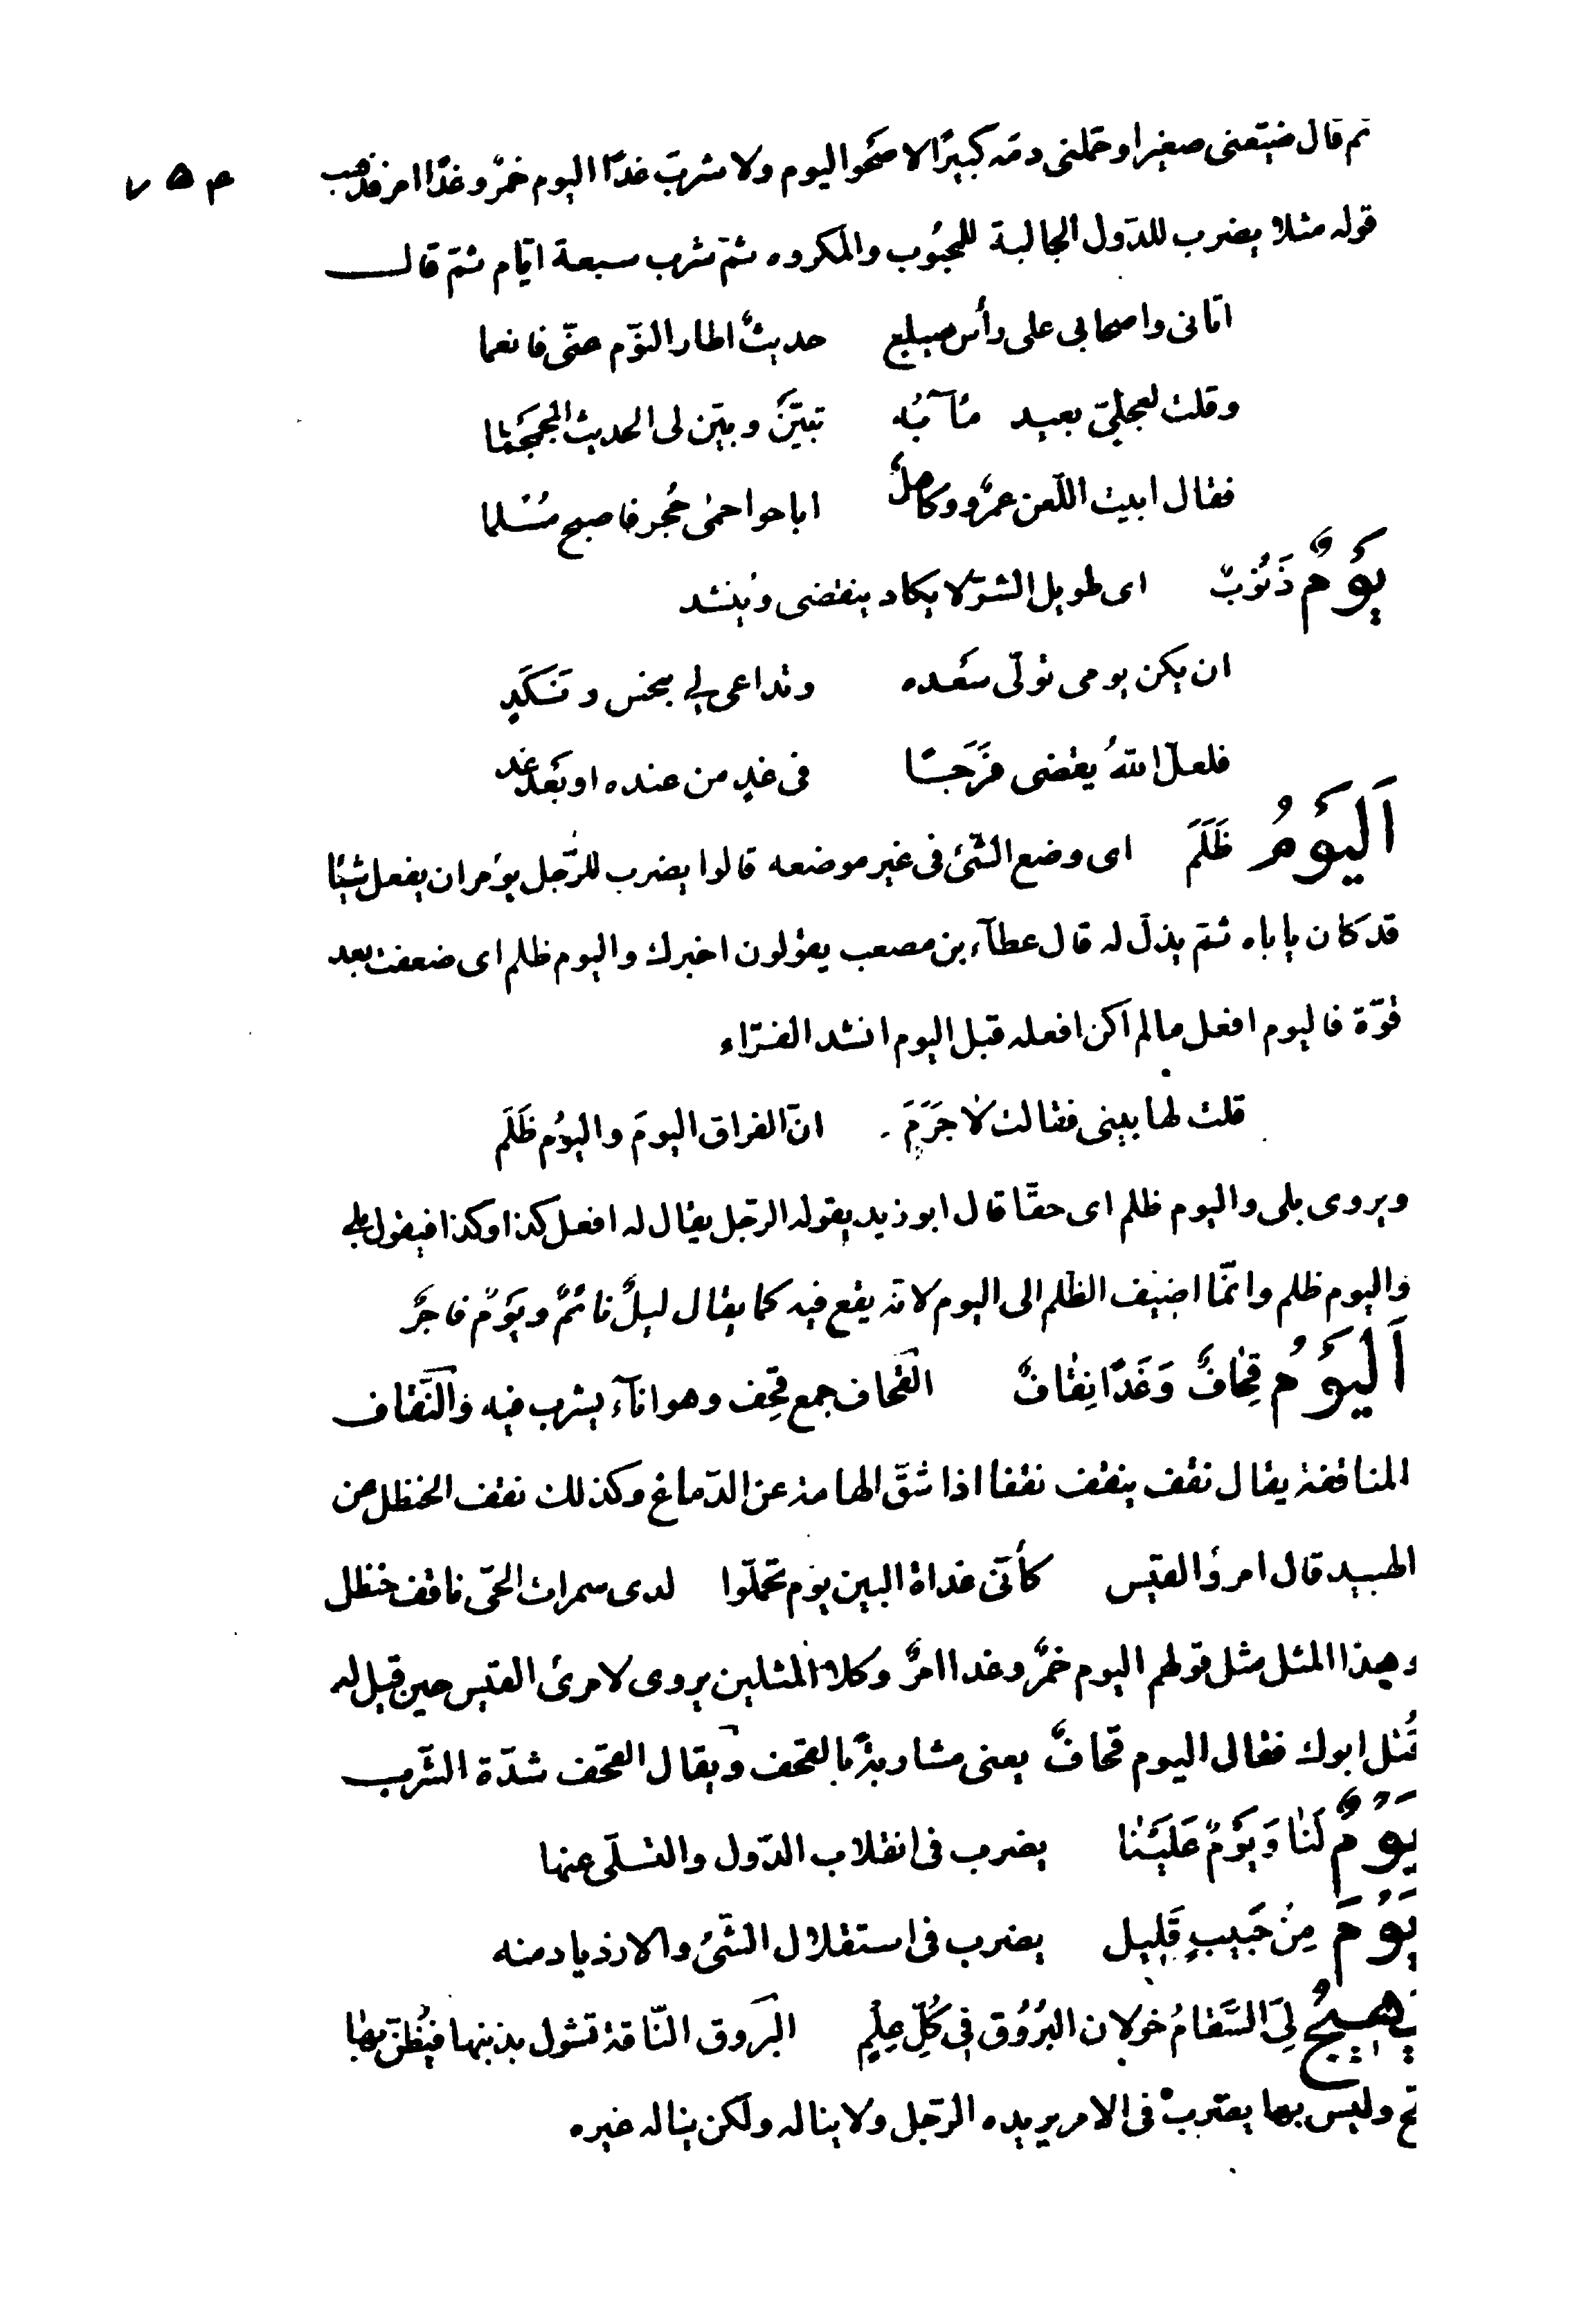 ثم قال ضیّعنی صغیرا وحمّلنی دمه کبیرًا لا صَحْوَ الیوم ولا شربَ غدًا الیوم خمرٌ وغدًا امر فذهب
قوله مثلا یضرب للدّول الجالبة للمحبُوب والمکروه ثمّ شرب سبعة ایّام ثمّ قال
اتانی واصحابی علی رأس صیلع حدیثٌ اطار النّوم عنّی فانعما
وقلت لعجلیّ بعید مَآبُه تبیّنْ وبیّن لی الحدیث المجمجما
فقال ابیت اللّعن عمرٌو وکاهلٌ اباحوا حمٰی حُجر فاصبح مُسْلما
یَوْمٌ ذَنُوْبٌ ای طویل الشّرّ لا یکاد ینقضی ویُنشد
ان یکن یومی تولّی سَعْده وتداعی لی بنحس ونَکَدٍ
فلعلّ اللهُ یقضی فَرَجًا فی غدٍ من عنده او بَعْد غد
اَلیَوْمُ ظَلَمَ ای وضع الشّئ فی غیر موضعه قالوا یضرب للرّجل یؤمر ان یفعل شیئًا
قد کان یاباه ثمّ یذلّ له قال عطآء بن مصعب یقولون اخبرك والیوم ظلم ای ضعفت بعد
قوّة فالیوم افعل ما لم اکن افعله قبل الیوم انشد الفرّاء
قلت لها بینی فقالت لا جَرَمَ انّ الفراق الیومَ والیوْم ظَلَمَ
ویروی بلی والیوم ظلم ای حقّا قال ابو زید یقوله الرّجل یقال له افعل کذا وکذا فیقول بلی
والیوم ظلم وانّما اضیف الظّلم الی الیوم لانّه یقع فیه کما یقال لیلٌ نائمٌ ویَوْمٌ فاجرٌ
اَلیَوْمُ قِحَافٌ وَغَدًا نِقَافٌ القحاف جمع قِحف وهو انآء یشرب فیه والنّقاف
المناقفة یقال نقف ینقف نقفا اذا شقّ الهامة عن الدّماغ وکذلك نقف الحنظل عن
الهبید قال امرؤ القیس کأنّی غداة البین یوم تحمّلوا لدی سمرات الحیّ ناقف حنظل
وهذا المثل مثل قولهم الیوم خمرٌ وغدا امرٌ وکلا المثلین یروی لامرئ القیس حین قیل له
قُتل ابوك فقال الیوم قحافٌ یعنی مشاربةً بالقحف ویقال القحف شدّة الشّرب
یَوْمٌ لَنَا وَیَوْمٌ عَلَیْنَا یضرب فی انقلاب الدّول والتسلّی عنها
یَوْمٌ مِنْ حَبِیبٍ قَلِیل یضرب فی استقلال الشّیْ والازدیاد منه
یَهِیجُ لِیَ السَّقامُ خولان البُرُوُق فِی کُلِّ عِلْمٍ البَروق النّاقة تشول بذنبها فیُظنّ بها
لقح ولیس بها یضرب فی الامر یریده الرّجل ولا یناله ولکن یناله غیره